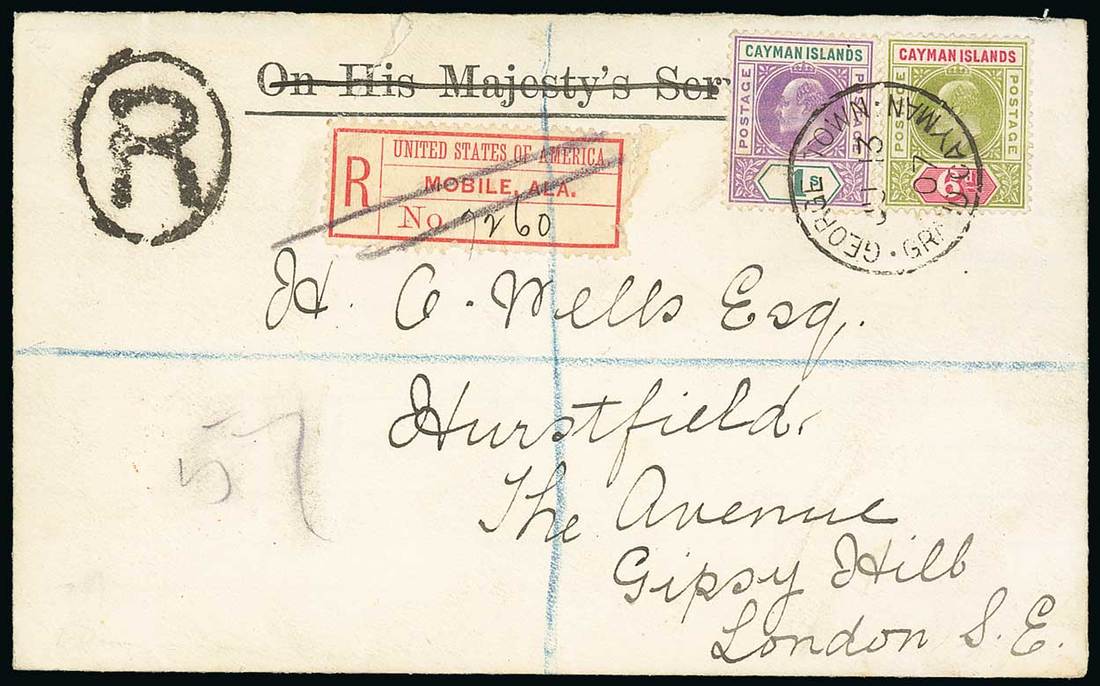 R
On His Majesty's Ser
CAYMAN ISLANDS
POSTAGE
1s
CAYMAN ISLANDS
POSTAGE
6d
GEORGE TOWN · GRAND CAYMAN ·
13
07
R
UNITED STATES OF AMERICA
MOBILE, ALA.
No. 7260
H. C. Wells Esq.
Hurstfield,
The Avenue
Gipsy Hill
London S. E.
57